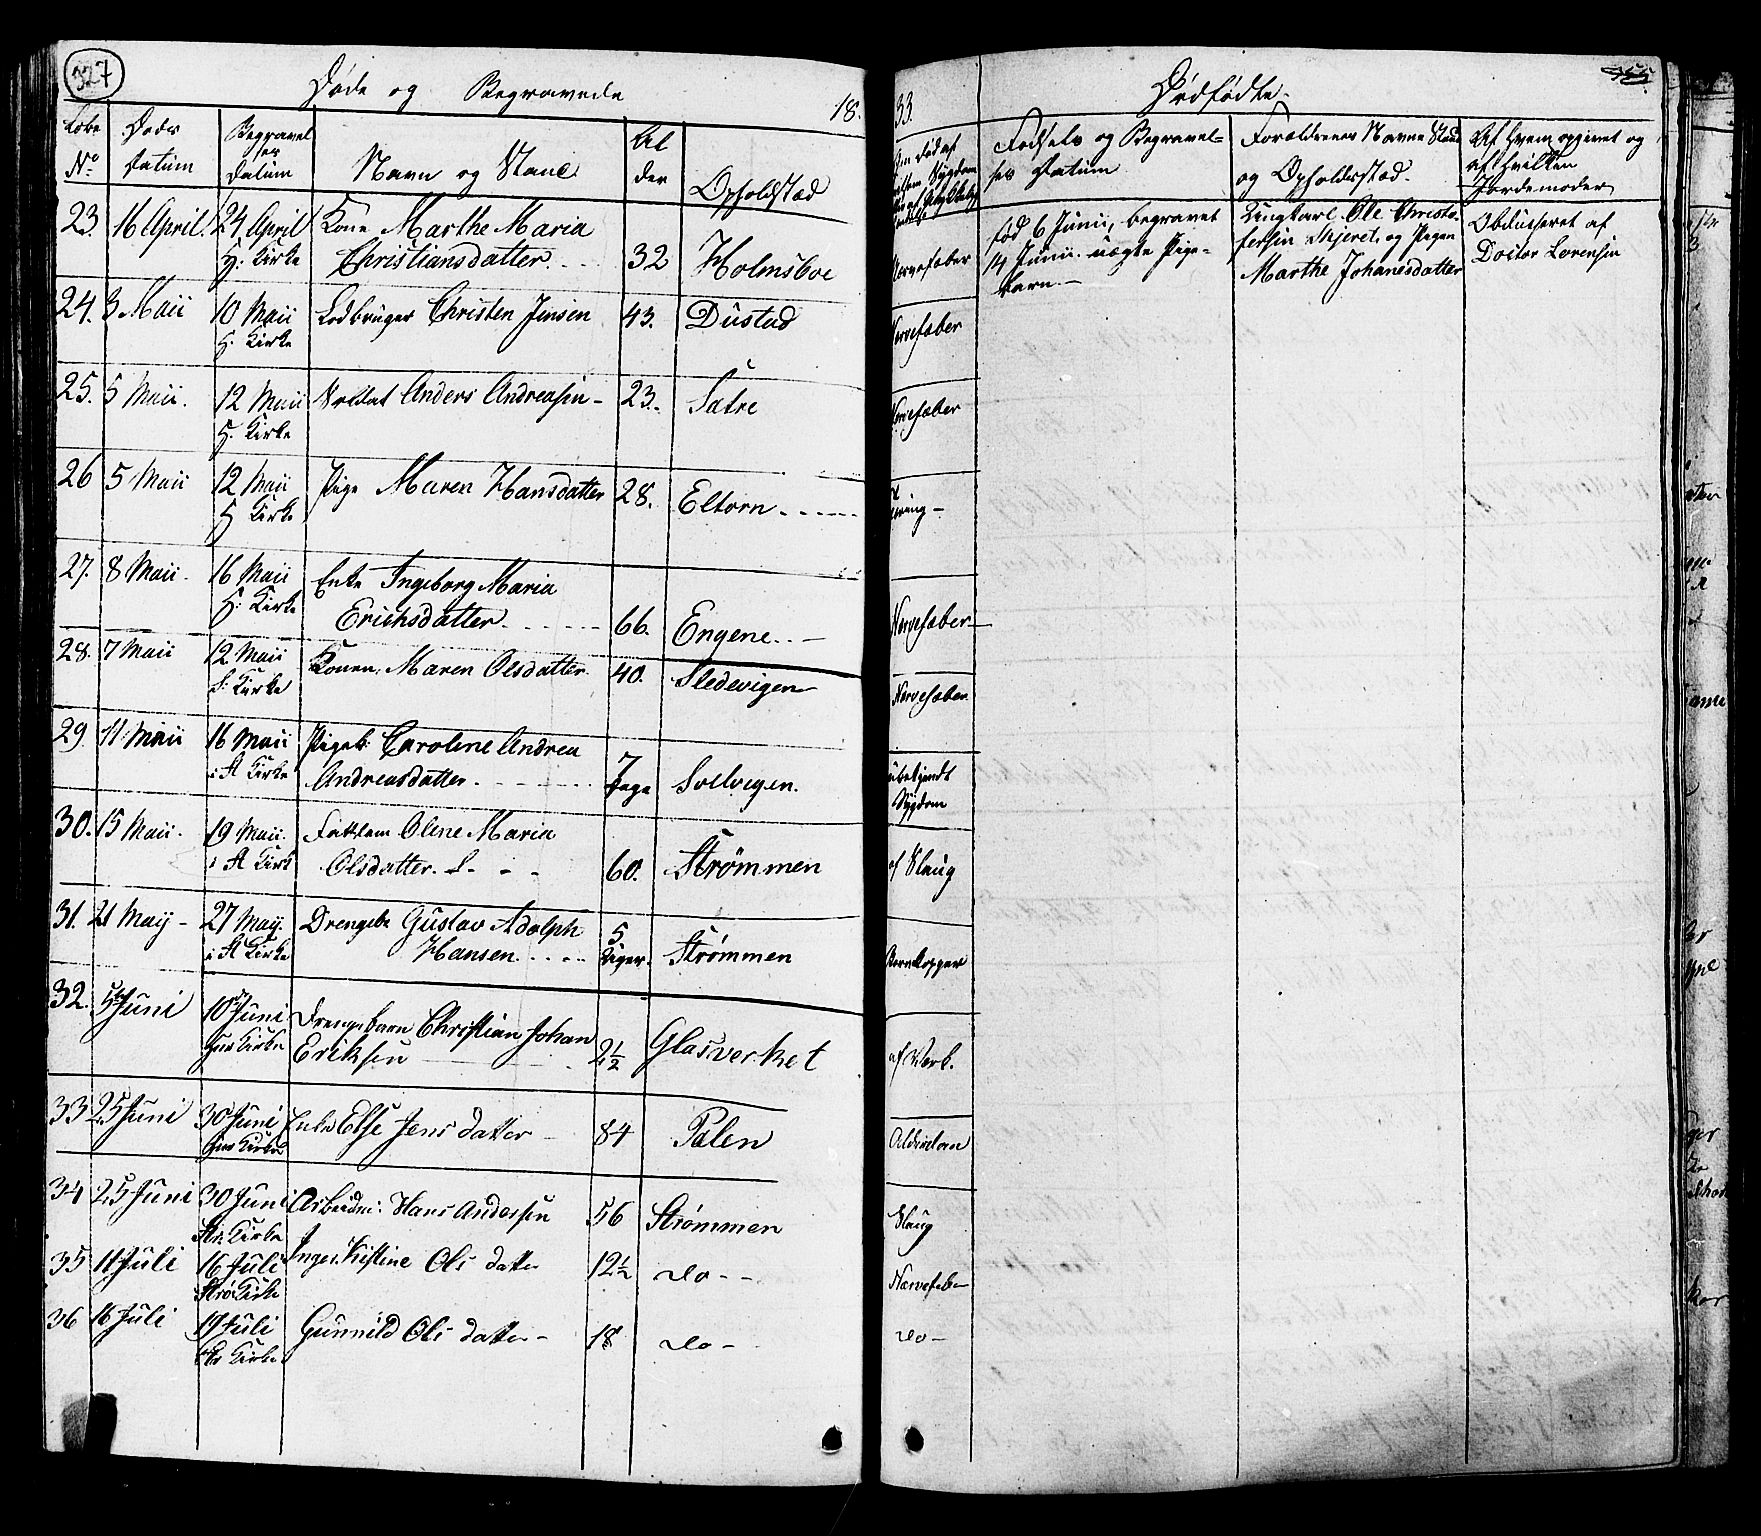 327
Døde og Begravede
18
Løbe No
Døds Datum
Begravelses Datum
Navn og Stand
Alder
Opholdstæd
23. 16 April. 24 April H: Kirke Kone Marthe Maria Christiansdatter. 32 Holmsboe
24. 3 Maii 10 Maii H: Kirke Lodbruger Christen Jensen 43. Dustad
25. 5 Maii. 12 Maii H. Kirke Anders Andreasen - 23. Sætre
26 5 Maii 12 Maii H Kirke Pige Maren Hansdatter 28. Eltorn
27. 8 Maii. 16 Maii H: Kirke Enke Ingeborg Maria Erichsdatter. 66. Engene
28. 7 Maii 12 Maii Kirke Konen Maren Olsdatter. 40. Sledevigen
29. 11 Maii 16 Maii i St Kirke Pigeb: Caroline Andrea Andreasdatter 7 Dage Solvigen.
30. 15 Maii. 19 Maii. i St Kirk Fattlem Olene Maria Olsdatter. 60. Strømmen
31. 21 Maij - 27 Maij. i St Kirke Drengeb Gustav Adolph Hansen. 5 Uger. Strømmen
32. 5te Juni 10de Juni Kirke Drengebarn Christian Johan Eriksen 2½ Glasverket
33 25 Juni 30 Juni Kirke Enke Else Jens datter 84 Palen
34 25 Juni 30 Juni Str: Kirke Arbeidm: Hans Andersen 56 Strømmen
35 11 Juli 16 Juli Strø: Kirke Inger Kistine Ols datter 12½ do - -
36 16 Juli 19 Juli Str Kirke Gunnild Ols datter - 18 do -
33.
Dødfødte.
455
Fødsels og Begravelses Datum
Forældrenes Navne Stand og Opholdsstæd.
Af hvem opgivet og af hvilken Jordemoder
Nervefeber
fød 6 Junii, begravet 14 Junii. uægte Pigebarn. -
Ungkarl Ole Christofersen Skjeret, og Pigen Marthe Johanesdatter
Obduseret af Doctor Lorensen
Nervefeber
Nervefeber
Nervefeber
Nervefeber
ubekjendt Sygdom
af Slaug
Barnekopper
af Værk.
Alderdom
Slaug
Nervefeber
do -